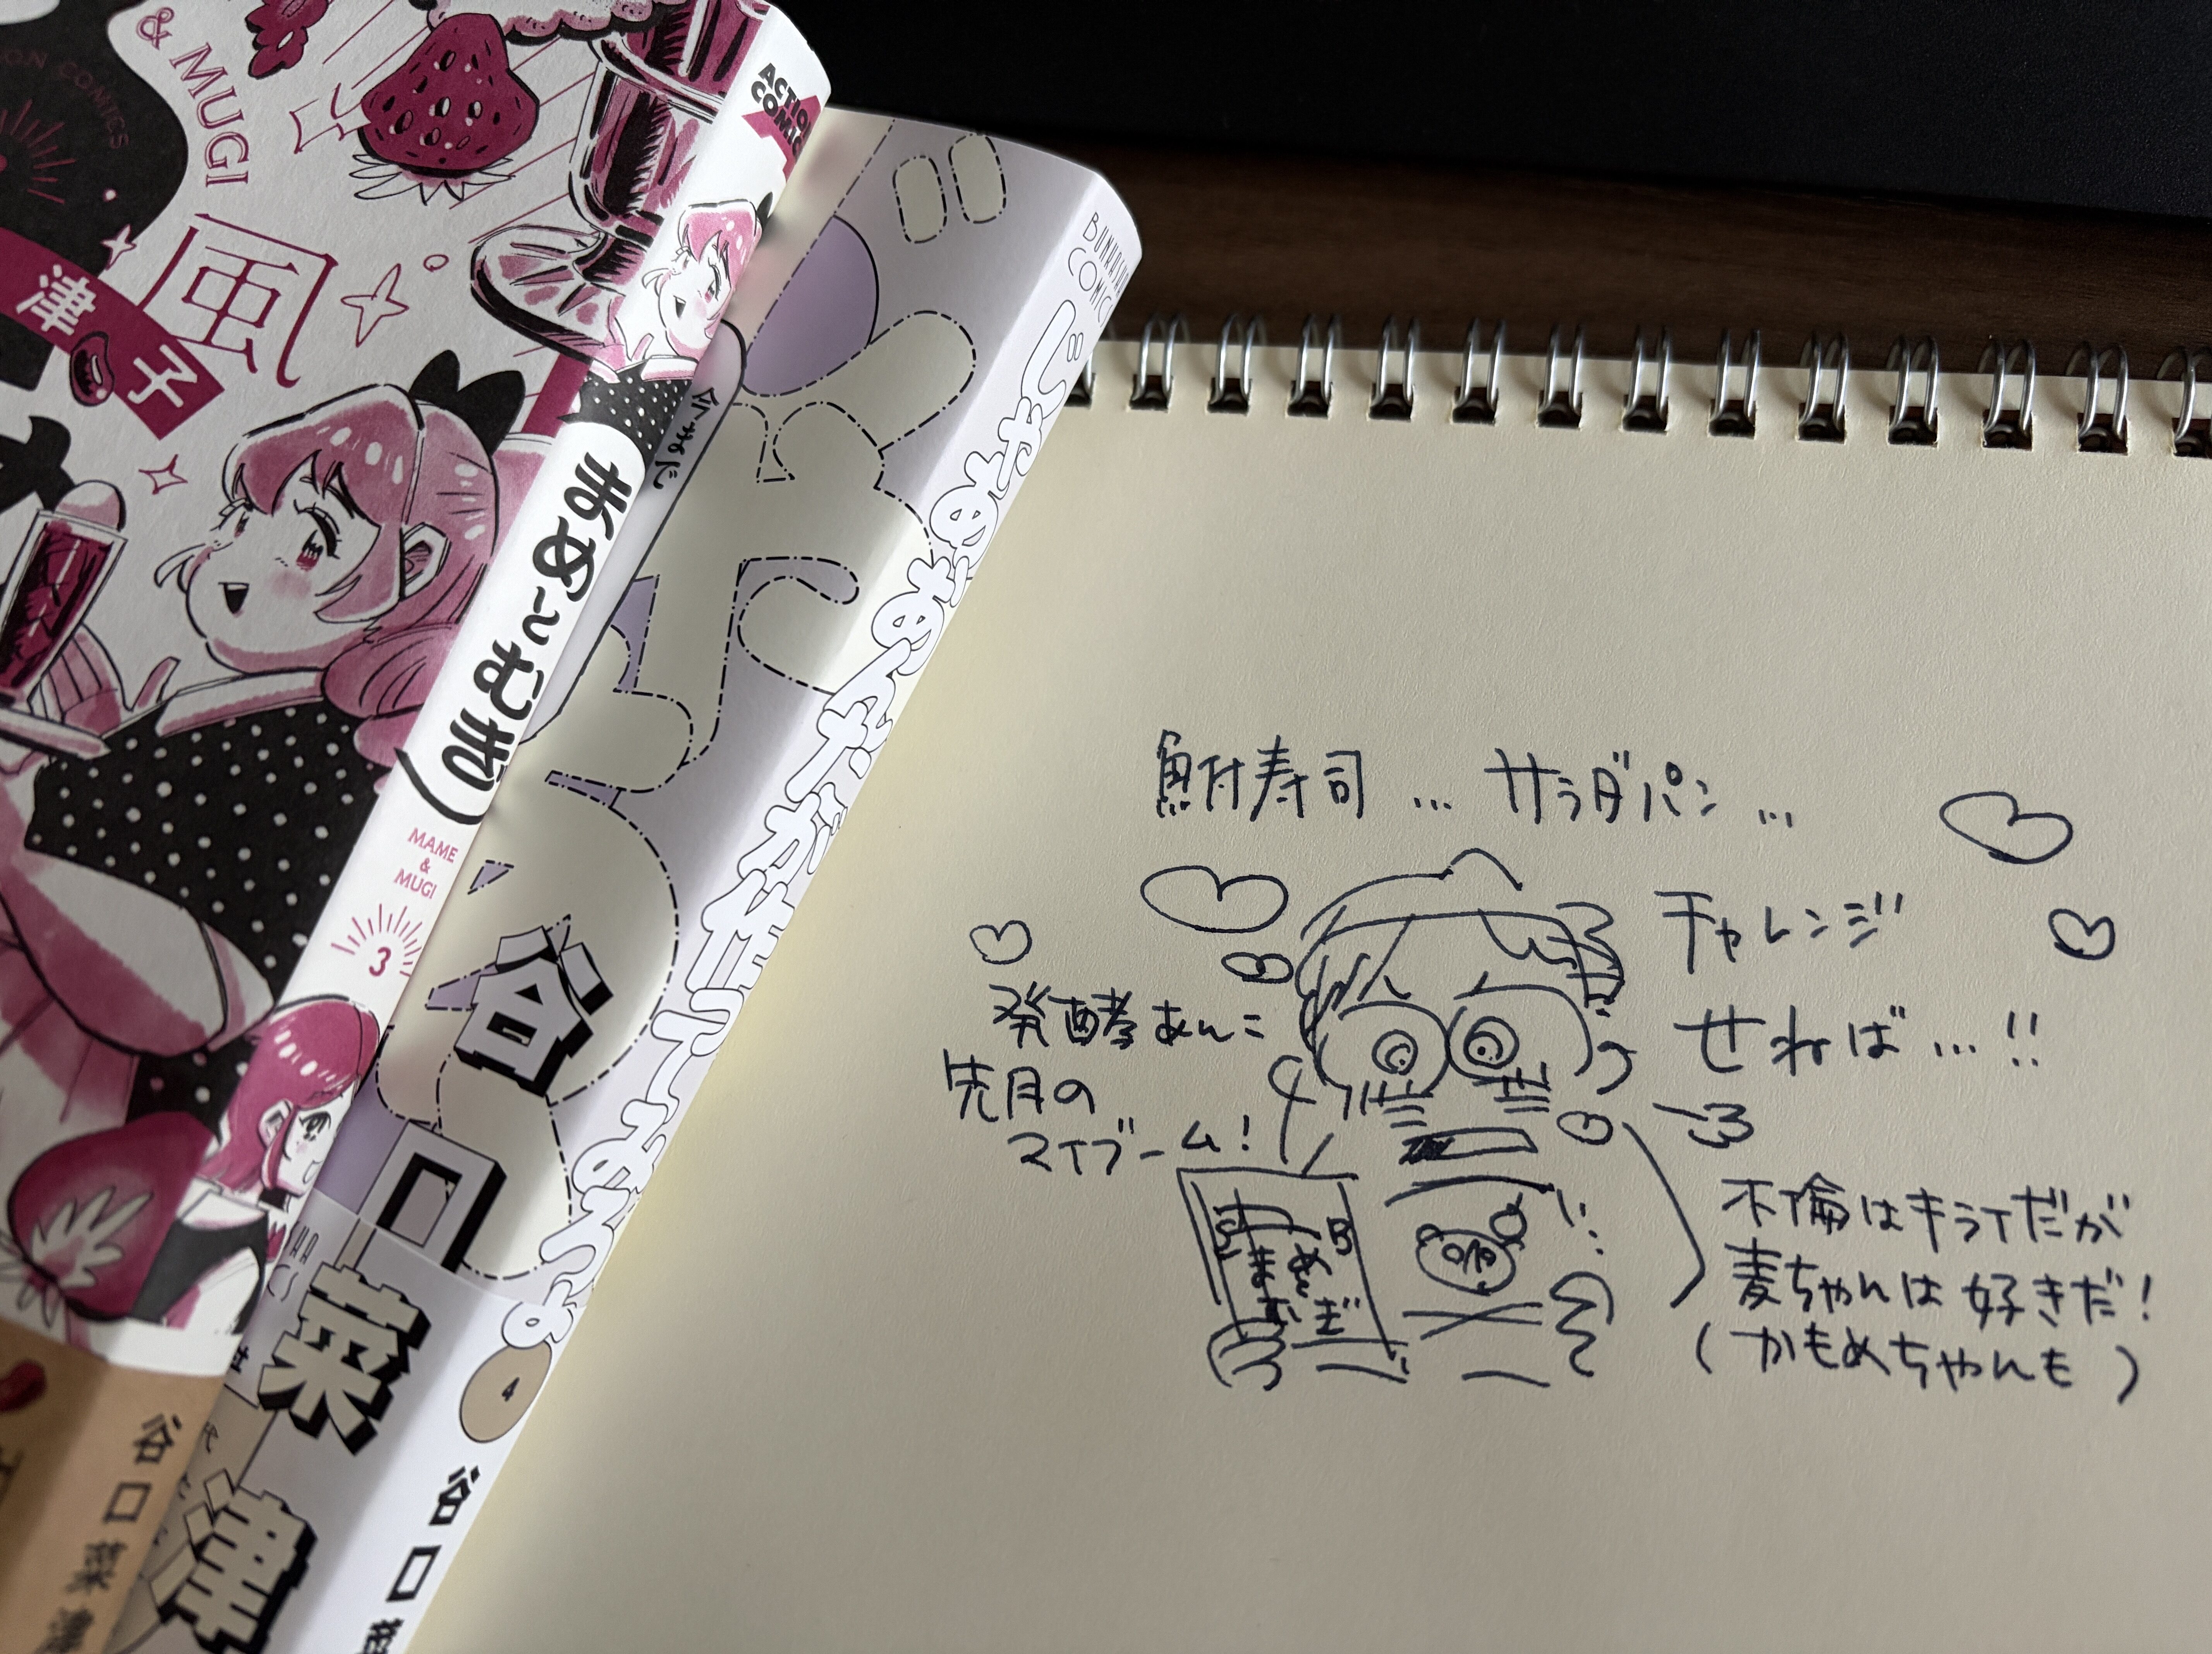 & MUGI
ON COMICS
風
津子
ACTION
COMICS
まめとむぎ
MAME
&
MUGI
3
谷口菜津
BUNKASHA
COMICS
じゃああんたが作ってみろよ
4
谷口菜津
谷口菜
鮒寿司…サラダパン…
チャレンジ
せねば…!!
発酵あんこ
先月の
マイブーム!
まめとむぎ
3
不倫はキライだが
麦ちゃんは好きだ!
(かもめちゃんも)